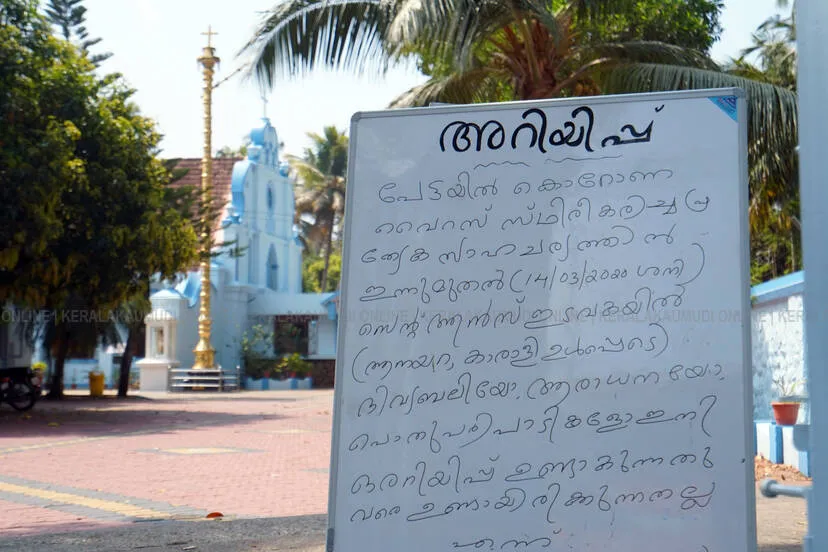 അറിയിപ്പ്
പേട്ടയിൽ കൊറോണ
വൈറസ് സ്ഥിരീകരിച്ച പ്ര
ത്യേക സാഹചര്യത്താൽ
ഇന്നുമുതൽ (14/03/2020 ശനി)
സെന്റ് ആൻസ് ഇടവകയിൽ
(ആനയറ, കാരാളി ഉൾപ്പെടെ)
ദിവ്യബലിയോ, ആരാധനയോ,
പൊതുപരിപാടികളോ ഇനി
ഒരറിയിപ്പ് ഉണ്ടാകുന്നതു
വരെ ഉണ്ടായിരിക്കുന്നതല്ല
എന്ന്
ONLINE | KERALAKAUMUDI ONLINE | KERALAKAUMUDI ONLINE | KERALAKAUMUDI ONLINE | KERA